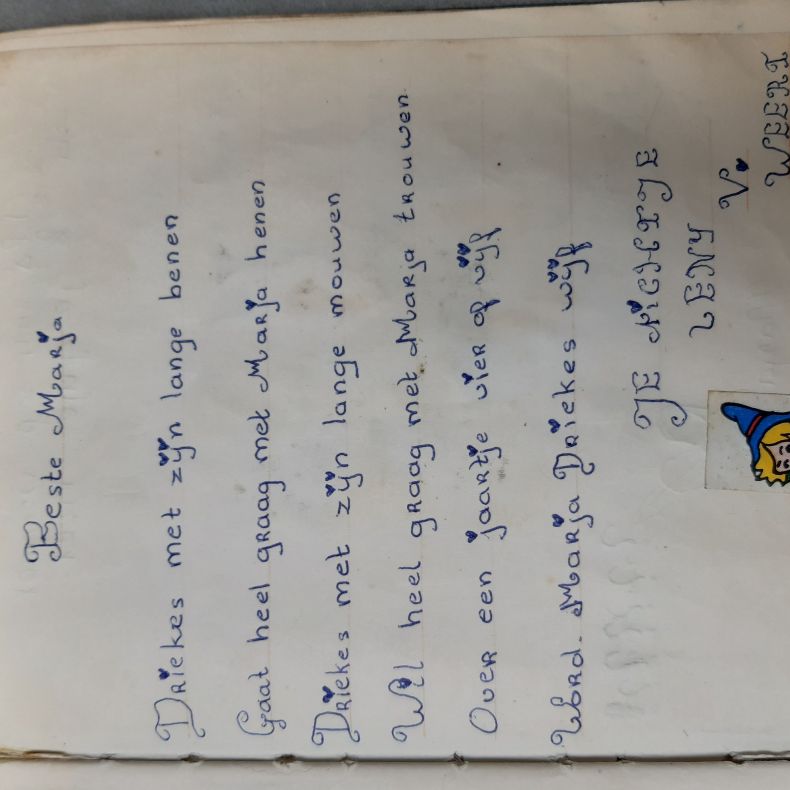 Beste Marja
Driekes met zijn lange benen
Gaat heel graag met Marja henen
Driekes met zijn lange mouwen
Wil heel graag met Marja trouwen
Over een jaartje vier of vijf
Word. Marja Driekes wijf
JE NICHTJE
LENY
V.
WEERT